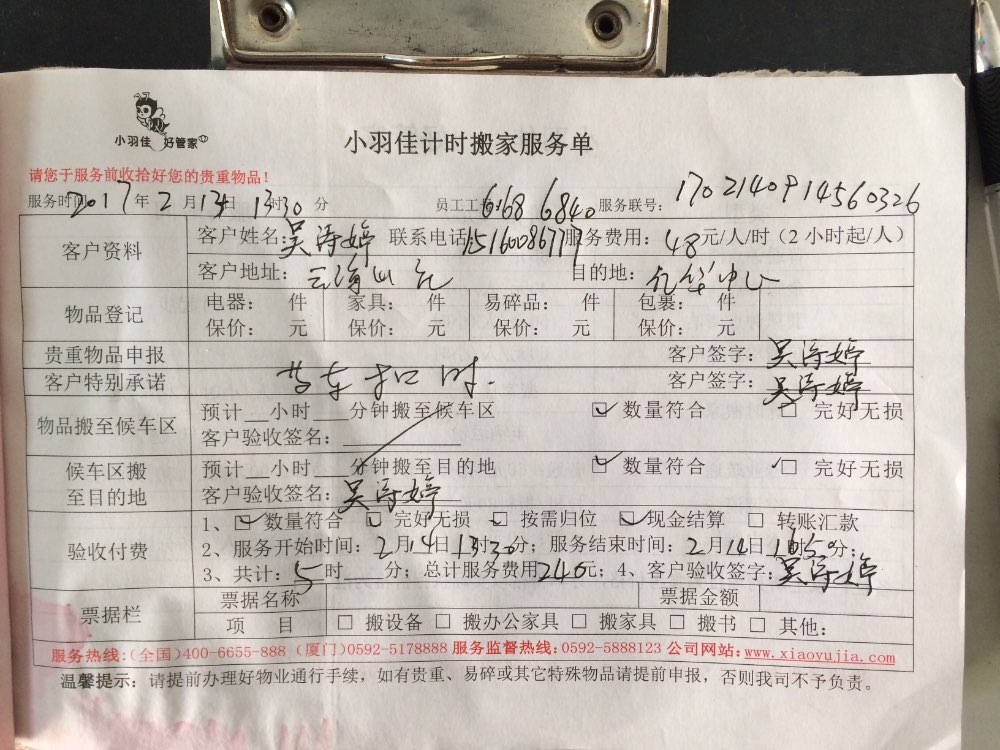 小羽佳 好管家
小羽佳计时搬家服务单
请您于服务前收拾好您的贵重物品!
服务时间 2017年2月13日 13时30分 员工工 6168 6840 服务联号: 170214091456032​6
客户资料 客户姓名: 吴涛婷 联系电话 15160086777 服务费用: 48元/人/时(2小时起/人)
客户地址: 目的地: 中心
物品登记 电器: 件 家具: 件 易碎品: 件 包裹: 件
保价: 元 保价: 元 保价: 元 保价: 元
贵重物品申报 客户签字: 吴涛婷
客户特别承诺 客户签字: 吴涛婷
物品搬至候车区 预计__小时__分钟搬至候车区 ☑ 数量符合 ☐ 完好无损
客户验收签名:
候车区搬至目的地 预计__小时__分钟搬至目的地 ☑ 数量符合 ☑ 完好无损
客户验收签名: 吴涛婷
验收付费 1、☑ 数量符合 ☑ 完好无损 ☑ 按需归位 ☑ 现金结算 ☐ 转账汇款
2、服务开始时间: 2月14日13时30分; 服务结束时间: 2月14日
3、共计: 5时__分; 总计服务费用240元; 4、客户验收签字: 吴涛婷
票据栏 票据名称 票据金额
项 目 ☐ 搬设备 ☐ 搬办公家具 ☐ 搬家具 ☐ 搬书 ☐ 其他:
服务热线:(全国)400-6655-888 (厦门)0592-5178888 服务监督热线:0592-5888123 公司网站:www.xiaoyujia.com
温馨提示: 请提前办理好物业通行手续, 如有贵重、易碎或其它特殊物品请提前申报, 否则我司不予负责。